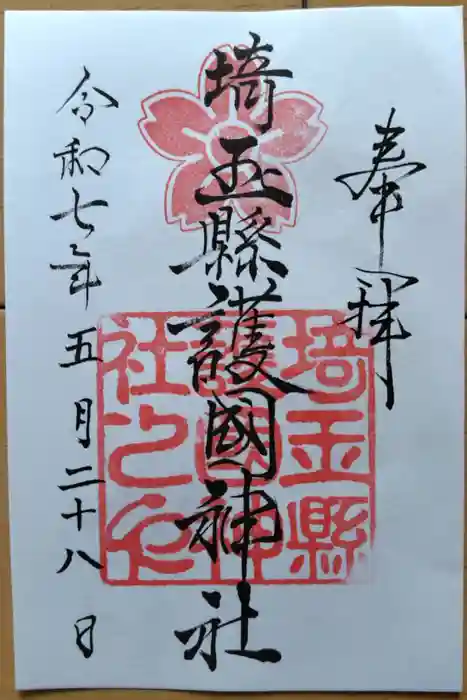 奉拝
埼玉縣護國神社
埼玉縣
護國神
社之印
令和七年五月二十八日